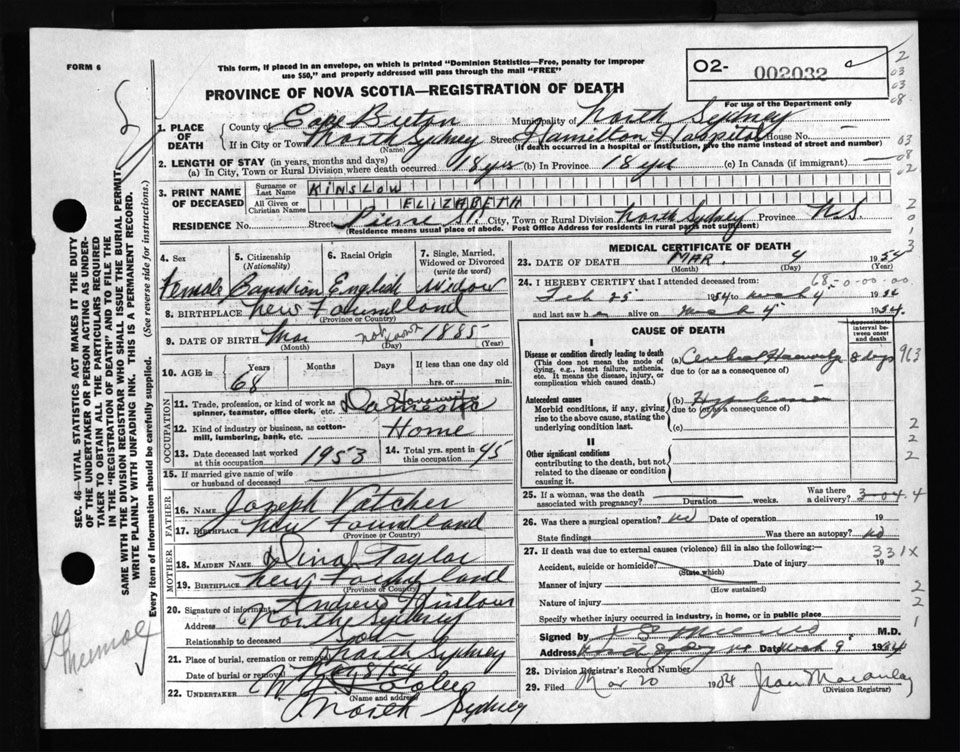 FORM 6
This form, if placed in an envelope, on which is printed "Dominion Statistics—Free, penalty for improper
use $50," and properly addressed will pass through the mail "FREE"
PROVINCE OF NOVA SCOTIA—REGISTRATION OF DEATH
O2- 002032
For use of the Department only
1. PLACE OF DEATH
County of Cape Breton Municipality of North Sydney
If in City or Town North Sydney (Name) Street Hamilton Hospital House No. —
(If death occurred in a hospital or institution, give the name instead of street and number)
2. LENGTH OF STAY (in years, months and days)
(a) In City, Town or Rural Division where death occurred 18 yrs (b) In Province 18 yrs (c) In Canada (if immigrant) —
3. PRINT NAME OF DECEASED
Surname or Last Name KINSLOW
All Given or Christian Names ELIZABETH
RESIDENCE No. Street Pierce St. City, Town or Rural Division North Sydney Province N.S.
(Residence means usual place of abode. Post Office Address for residents in rural parts not sufficient)
4. Sex Female
5. Citizenship (Nationality) Canadian
6. Racial Origin English
7. Single, Married, Widowed or Divorced (write the word) Widow
8. BIRTHPLACE New Foundland
(Province or Country)
9. DATE OF BIRTH Mar (Month) not known (Day) 1885 (Year)
10. AGE in Years 68 Months Days If less than one day old hrs. or min.
OCCUPATION
11. Trade, profession, or kind of work as spinner, teamster, office clerk, etc. Domestic Housewife
12. Kind of industry or business, as cotton-mill, lumbering, bank, etc. Home
13. Date deceased last worked at this occupation 1953
14. Total yrs. spent in this occupation 45
15. If married give name of wife or husband of deceased
FATHER
16. NAME Joseph Vatcher
17. BIRTHPLACE New Foundland
(Province or Country)
MOTHER
18. MAIDEN NAME Dinah Taylor
19. BIRTHPLACE New Foundland
(Province or Country)
20. Signature of informant Andrew Kinslow
Address North Sydney
Relationship to deceased Son
21. Place of burial, cremation or removal North Sydney
Date of burial or removal Mar 8/54
22. UNDERTAKER
(Name and address)
North Sydney
MEDICAL CERTIFICATE OF DEATH
23. DATE OF DEATH MAR. (Month) 4 (Day) 1954 (Year)
24. I HEREBY CERTIFY that I attended deceased from:
Feb 25 1954 to March 4 1954
and last saw h alive on March 4 1954
CAUSE OF DEATH
Approximate interval between onset and death
I
Disease or condition directly leading to death
(This does not mean the mode of dying, e.g., heart failure, asthenia, etc. It means the disease, injury, or complication which caused death.
(a) Cerebral Hemorrhage 8 days 963
due to (or as a consequence of)
Antecedent causes
Morbid conditions, if any, giving rise to the above cause, stating the underlying condition last.
(b) Hypertension
due to (or as a consequence of)
(c)
II
Other significant conditions
contributing to the death, but not related to the disease or condition causing it.
25. If a woman, was the death associated with pregnancy? Duration weeks. Was there a delivery?
3-04 4
26. Was there a surgical operation? no Date of operation 19
State findings Was there an autopsy? no
27. If death was due to external causes (violence) fill in also the following:—
331X
Accident, suicide or homicide? Date of injury 19
(State which)
Manner of injury
(How sustained)
Nature of injury
Specify whether injury occurred in industry, in home, or in public place
Signed by M.D.
Address Date March 9 1954
28. Division Registrar's Record Number
29. Filed Mar 20 1954 Jean Macaulay
(Division Registrar)
SEC. 46—VITAL STATISTICS ACT MAKES IT THE DUTY
OF THE UNDERTAKER OR PERSON ACTING AS UNDER-
TAKER TO OBTAIN ALL THE PARTICULARS REQUIRED
IN THE "REGISTRATION OF DEATH" AND TO FILE THE
SAME WITH THE DIVISION REGISTRAR WHO SHALL ISSUE THE BURIAL PERMIT.
WRITE PLAINLY WITH UNFADING INK. THIS IS A PERMANENT RECORD.
Every item of information should be carefully supplied. (See reverse side for instructions.)